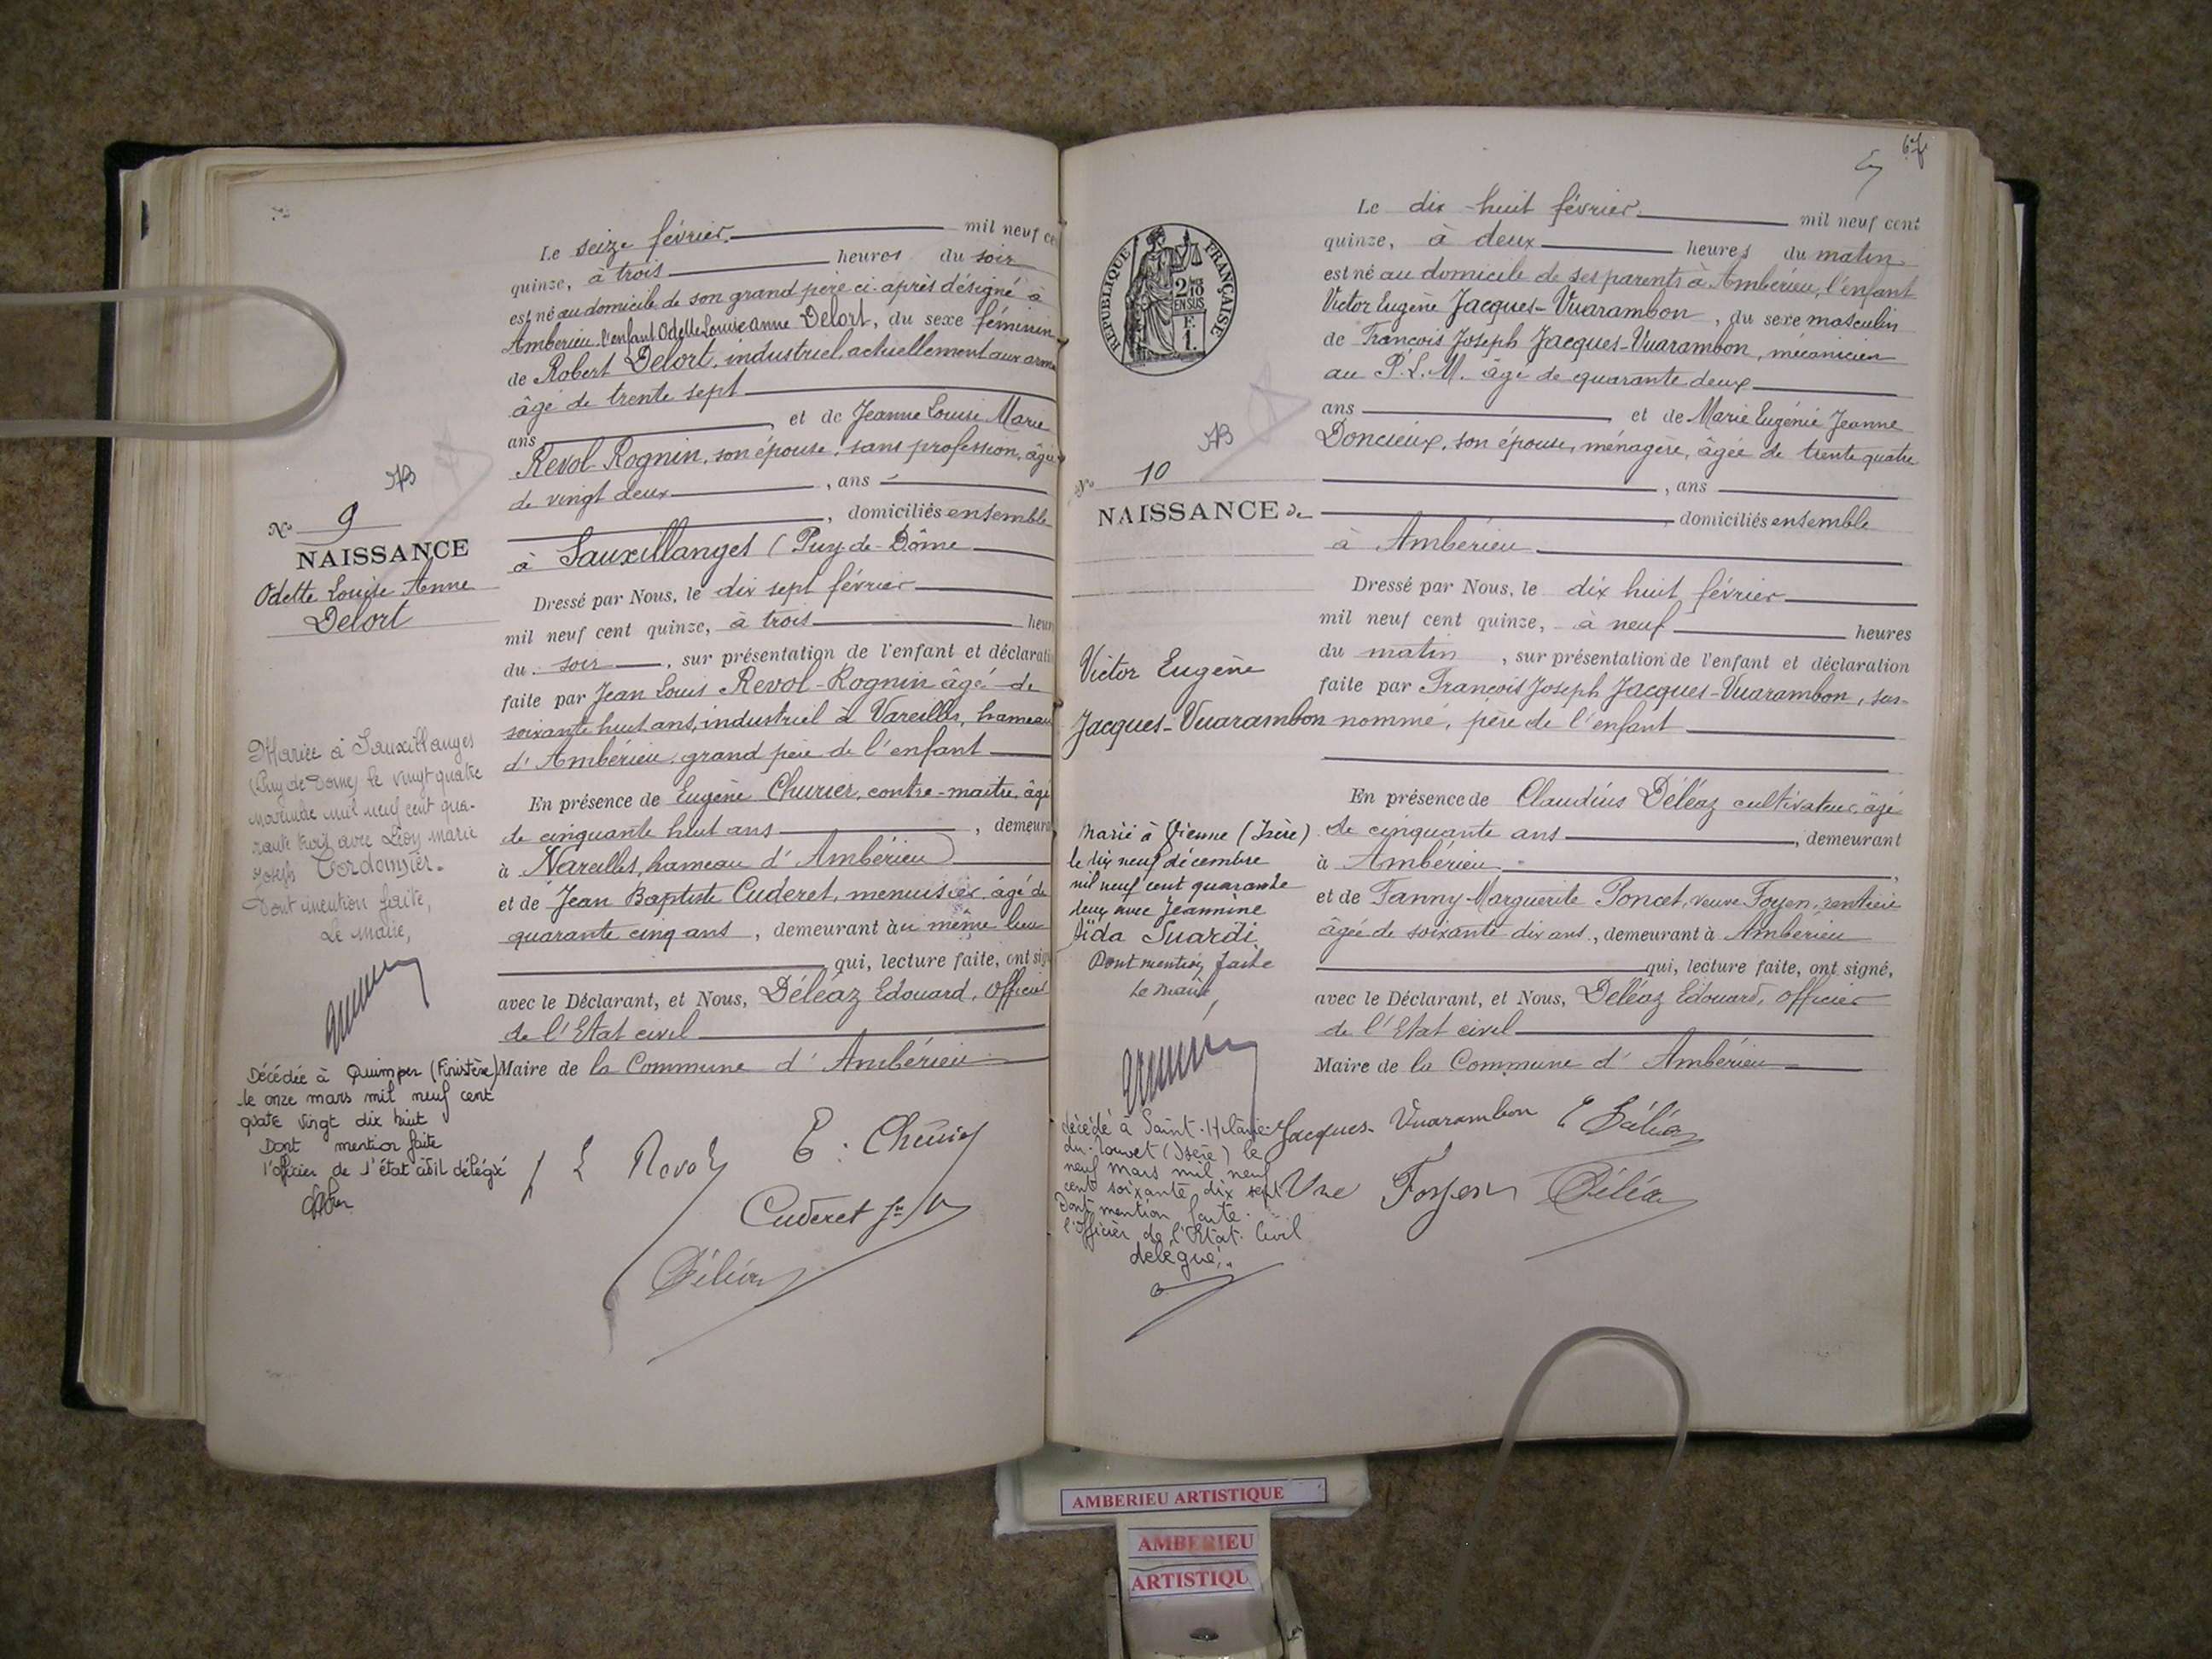 Le seize février mil neuf ce
quinze, à trois heures du soir
est né au domicile de son grand père ci-après désigné à
Ambérieu l'enfant Odette Louise Anne Delort, du sexe féminin
de Robert Delort, industriel, actuellement aux armé
âgé de trente sept
ans et de Jeanne Louise Marie
Revol-Rognin, son épouse, sans profession, âgée
de vingt deux, ans
domiciliés ensemble
à Sauxillanges (Puy-de-Dôme
Dressé par Nous, le dix sept février
mil neuf cent quinze, à trois heur
du soir, sur présentation de l'enfant et déclarati
faite par Jean Louis Revol-Rognin âgé de
soixante huit ans, industriel à Vareilles, hameau
d'Ambérieu, grand père de l'enfant
En présence de Eugène Churier, contre-maître, âgé
de cinquante huit ans, demeura
à Nareilles, hameau d'Ambérieu
et de Jean Baptiste Cuderet, menuisier, âgé de
quarante cinq ans, demeurant au même lieu
qui, lecture faite, ont sig
avec le Déclarant, et Nous, Déléaz Edouard, Officier
de l'Etat civil
Maire de la Commune d'Ambérieu
AB
N° 9
NAISSANCE
Odette Louise Anne
Delort
Mariée à Sauxillanges
(Puy de Dome) le vingt quatre
novembre mil neuf cent qua-
rante trois avec Léon Marie
Joseph Cordonnier.
Dont mention faite,
Le Maire,
Décédée à Quimper (Finistère)
le onze mars mil neuf cent
quatre vingt dix huit
Dont mention faite
l'officier de l'état civil délégué
J L Revol
E. Churier
Cuderet Jn
Déléaz
67
Le dix-huit février mil neuf cent
quinze, à deux heures du matin
est né au domicile de ses parents à Ambérieu, l'enfant
Victor Eugène Jacques-Vuarambon, du sexe masculin
de François Joseph Jacques-Vuarambon, mécanicien
au P.L.M. âgé de quarante deux
ans et de Marie Eugénie Jeanne
Doncieux, son épouse, ménagère, âgée de trente quatre
, ans
domiciliés ensemble
à Ambérieu
Dressé par Nous, le dix huit février
mil neuf cent quinze, à neuf heures
du matin, sur présentation de l'enfant et déclaration
faite par François Joseph Jacques-Vuarambon, sus-
nommé, père de l'enfant
En présence de Claudius Déléaz cultivateur, âgé
de cinquante ans, demeurant
à Ambérieu
et de Fanny Marguerite Poncet, veuve Foyen, rentière
âgée de soixante dix ans, demeurant à Ambérieu
qui, lecture faite, ont signé,
avec le Déclarant, et Nous, Deléaz Edouard, Officier
de l'Etat civil
Maire de la Commune d'Ambérieu
RÉPUBLIQUE FRANÇAISE
2/10 EN SUS
F. 1.
AB
N° 10
NAISSANCE de
Victor Eugène
Jacques-Vuarambon
Marié à Vienne (Isère)
le dix neuf décembre
mil neuf cent quarante
deux avec Jeannine
Aïda Suardi
Dont mention faite
Le Maire,
décédé à Saint-Hilaire-
du-Touvet (Isère) le
neuf mars mil neuf
cent soixante dix sept
Dont mention faite.
l'Officier de l'Etat Civil
délégué,
Jacques-Vuarambon
C Déléaz
Vve Foyen
Déléaz
AMBERIEU ARTISTIQUE
AMBERIEU
ARTISTIQU